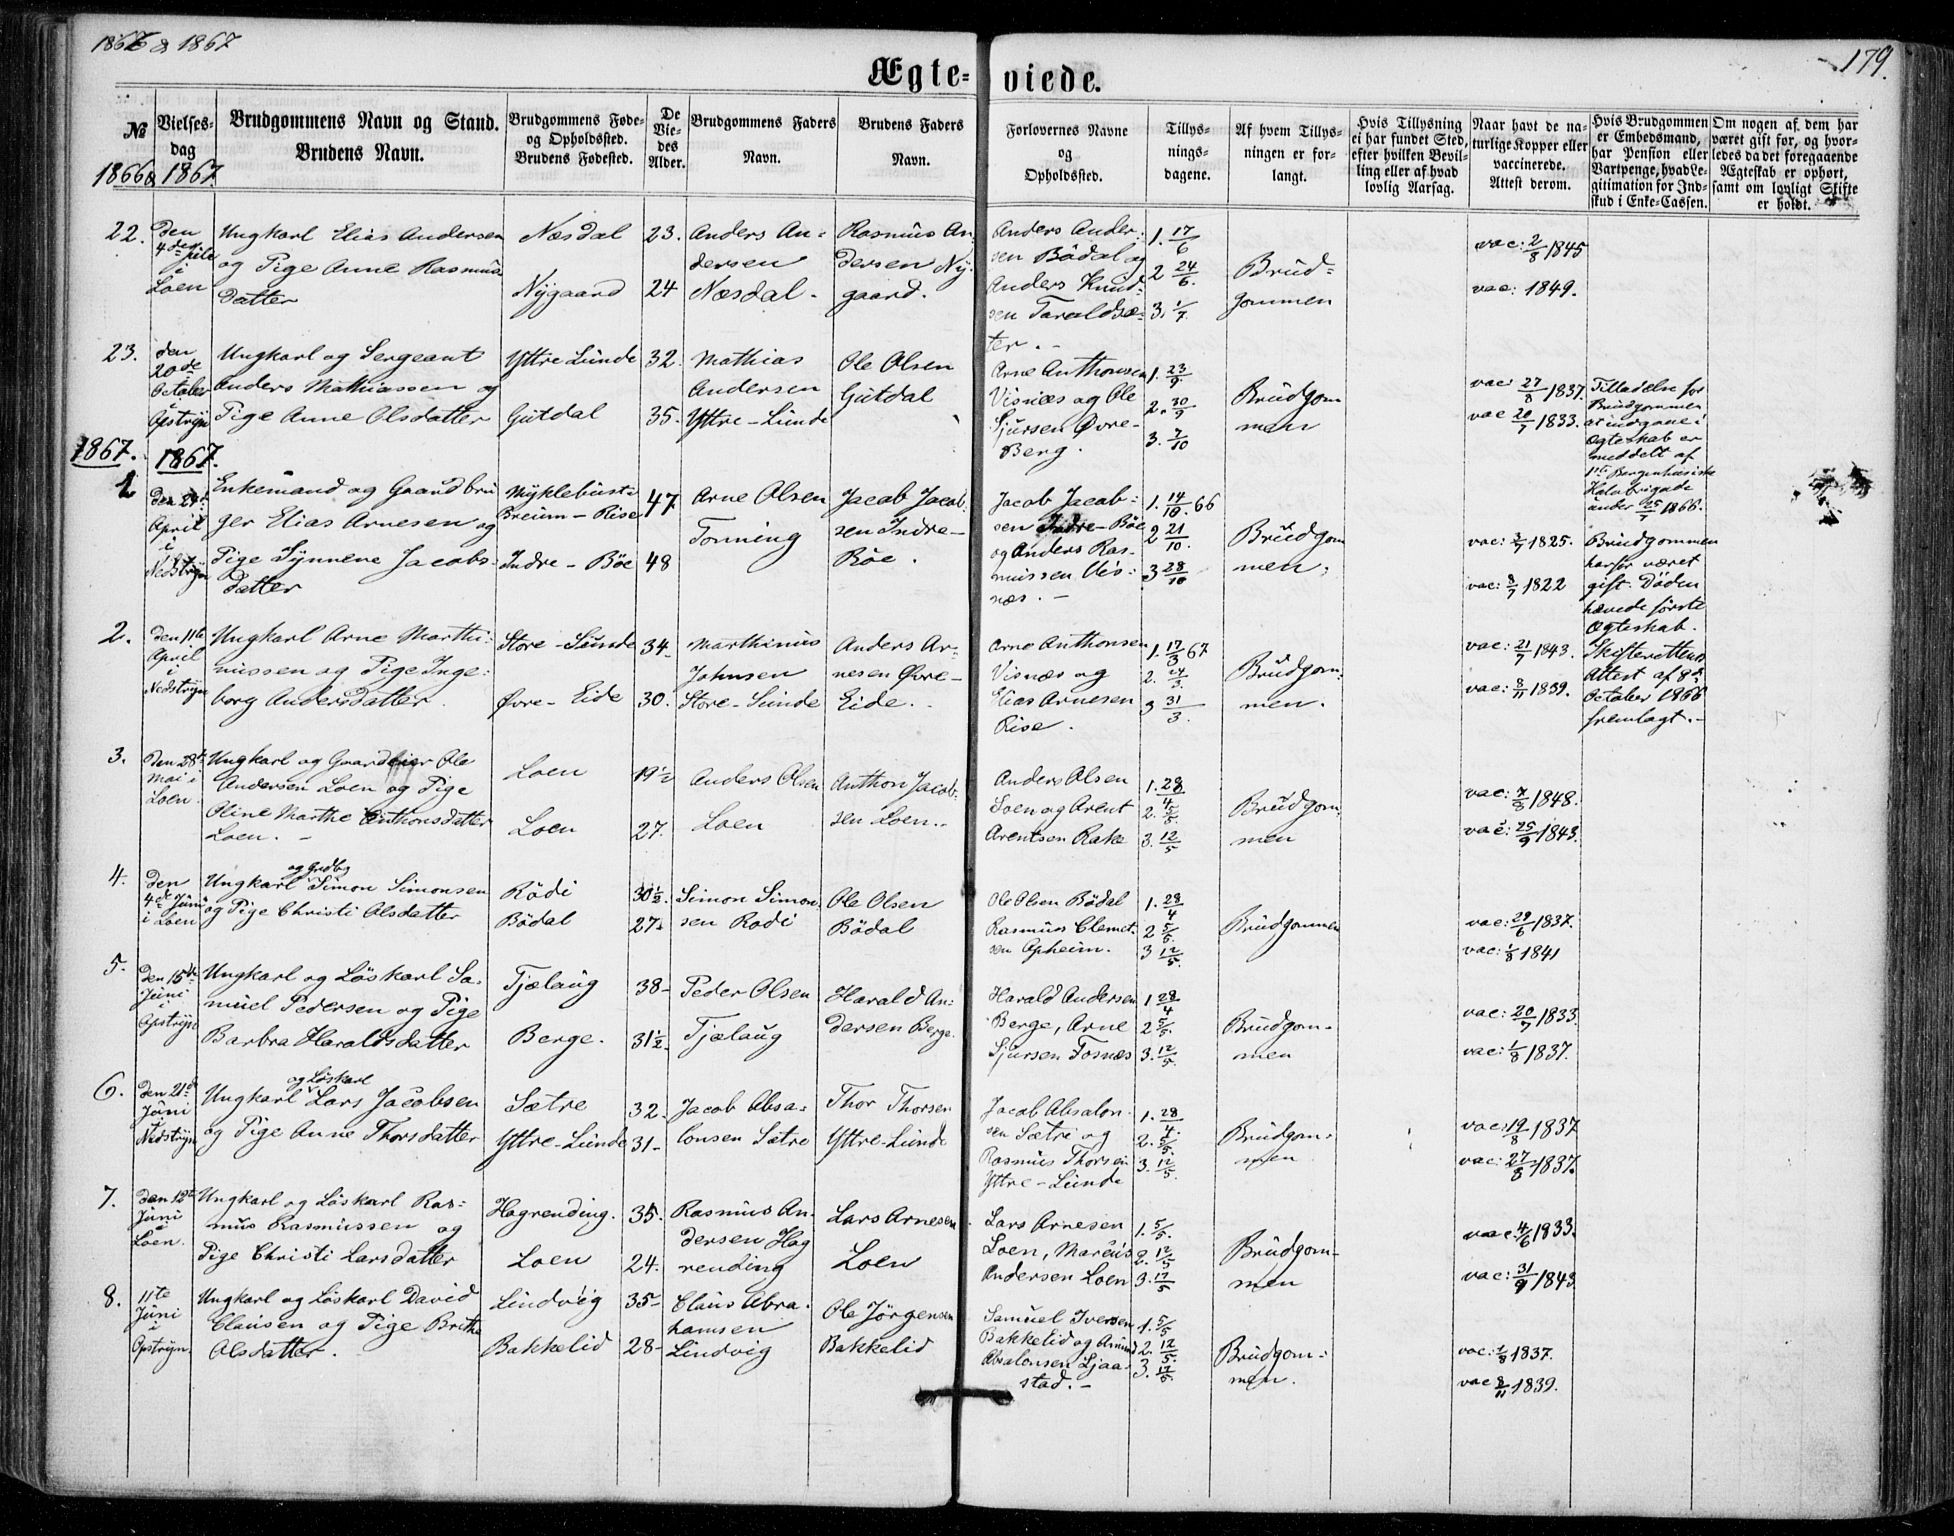 1866 & 1867
179.
Ægte-viede.
No
Vielses-dag
Brudgommens Navn og Stand.
Brudens Navn.
Brudgommens Føde- og Opholdssted.
Brudens Fødested.
De Viedes Alder.
Brudgommens Faders Navn.
Brudens Faders Navn.
Forlovernes Navne og Opholdssted.
Tillysningsdagene.
Af hvem Tillysningen er forlangt.
Hvis Tillysning ei har fundet Sted, efter hvilken Bevilling eller af hvad lovlig Aarsag.
Naar havt de naturlige Kopper eller vaccinerede. Attest derom.
Hvis Brudgommen er Embedsmand, har Pension eller Vartpenge, hvad Legitimation for Indskud i Enke-Cassen.
Om nogen af dem har været gift før, og hvorledes da det foregaaende Ægteskab er ophørt, samt om lovligt Skifte er holdt.
1866 & 1867.
22.
den 4de Juli i Loen
Ungkarl Elias Andersen
og Pige Anne Rasmus
datter
Næsdal
Nygaard
23.
24
Anders An-
dersen
Næsdal.
Rasmus An-
dersen Ny-
gaard.
Anders Ander-
sen Bödal og
Anders Knud-
sen Taraldsæ-
ter.
1. 17/6
2 24/6.
3. 1/7.
Brud-
gommen
vac: 2/8 1845
vac: 1849.
23.
den 20de October i Opstryn
Ungkarl og Sergeant
Anders Mathiassen og
Pige Anne Olsdatter
Yttre Lunde
Gutdal
32.
35.
Mathias
Andersen
Yttre-Lunde
Ole Olsen
Gutdal
Arne Anthonsen
Visnæs og Ole
Sjursen Øvre-
Berg.
1. 23/9.
2. 30/9
3. 7/10
Brudgom
men
vac: 27/8 1837.
vac 20/7 1833.
Tilladelse for
Brudgommen
at indgaae i
Ægteskab er
meddelt af
1ste Bergenhusiske
Halvbrigade
under 25/7 1866.
1867.
1867.
1
Den 24d April i Nedstryn
Enkemand og Gaardbru
ger Elias Arnesen og
Pige Synneve Jacobs-
datter
Myklebust i
Breum-Rise
Indre-Böe
47
48
Arne Olsen
Tonning
Jacob Jacob
sen Indre-
Böe.
Jacob Jacob-
sen Indre-Böe
og Anders Ras-
mussen Vis-
næs.
1. 14/10. 66
2 21/10.
3 28/10
Brudgom
men,
vac: 3/7 1825.
vac: 8/7 1822
Brudgommen
har før været
gift. Döden
hævede første
Ægteskab.
Skifterettens
Attest af 8de
October 1866
fremlagt.
2.
Den 11te April i Nedstryn
Ungkarl Arne Marthi-
nussen og Pige Inge-
borg Andersdatter.
Store-Sunde
Øvre-Eide
34.
30.
Marthinus
Johnsen
Store-Sunde
Anders Ar-
nesen Øvre-
Eide.
Arne Anthonsen
Visnæs og
Elias Arnesen
Rise.
1. 17/3 67
2. 24/3.
3 31/3.
Brudgom-
men.
vac: 21/7 1843.
vac: 8/11 1839.
3.
Den 28de Mai i Loen.
Ungkarl og Gaardeier Ole
Andersen Loen og Pige
Oline Marthe Anthonsdatter
Loen.
Loen
Loen
19 1/2
27.
Anders Olsen
Loen
Anthon Jacob-
sen Loen.
Anders Olsen
Loen og Arent
Arentsen Rake
1. 28/4
2. 5/5.
3. 12/5
Brudgom-
men
vac: 7/8 1848.
vac: 25/9 1843.
4.
Den 4de Juni i Loen
Ungkarl og Grdbg Simon Simonsen
og Pige Christi Olsdatter
Rödi
Bödal
30 1/2.
27.
Simon Simon-
sen Rodi
Ole Olsen
Bödal
Ole Olsen Bödal
Rasmus Clemet-
sen Opheim.
1. 28/4
2 5/5.
3 12/5.
Brudgommen
vac: 29/6 1837.
vac: 1/8 1841
5.
Den 15de Juni i Opstryn
Ungkarl og Löskarl Sa-
muel Pedersen og Pige
Barbra Haraldsdatter
Tjælaug
Berge.
38
31 1/2.
Peder Olsen
Tjælaug
Harald An-
dersen Berge.
Harald Andersen
Berge, Arne
Sjursen Fosnæs
1 28/4
2 5/5.
3. 12/5.
Brudgom-
men
vac: 20/7 1833.
vac: 1/8 1837.
6.
Den 21de Juni i Nedstryn
Ungkarl og Löskarl Lars Jacobsen
og Pige Anne Thorsdatter
Sætre
Yttre-Lunde
32.
31
Jacob Absa-
lonsen Sætre
Thor Thorsen
Yttre-Lunde
Jacob Absalon-
sen Sætre og
Rasmus Thorsen
Yttre-Lunde
1. 28/4.
2. 5/5.
3. 12/5.
Brudgom-
men
vac: 19/8 1837
vac: 27/8 1837.
7.
Den 12te Juni i Loen.
Ungkarl og Löskarl Ras-
mus Rasmussen og
Pige Christi Larsdatter
Hogrending.
Loen
35.
24.
Rasmus An-
dersen Hog
rending
Lars Arnesen
Loen
Lars Arnesen
Loen, Marcus
Andersen Loen
1. 5/5.
2. 12/5
3. 17/5
Brudgom-
men
vac. 4/6 1833.
vac: 31/9 1843.
8.
11te Juni i Opstryn.
Ungkarl og Löskarl David
Clausen og Pige Brithe
Olsdatter.
Lindvig
Bakkelid
35
28
Claus Abra-
hamsen
Lindvig
Ole Jörgensen
Bakkelid
Samuel Iversen
Bakkelid og Amund
Absalonsen Ljaa-
stad.
1. 5/5
2. 12/5.
3. 17/5.
Brudgom-
men.
vac: 1/8 1837.
vac 8/11 1839.